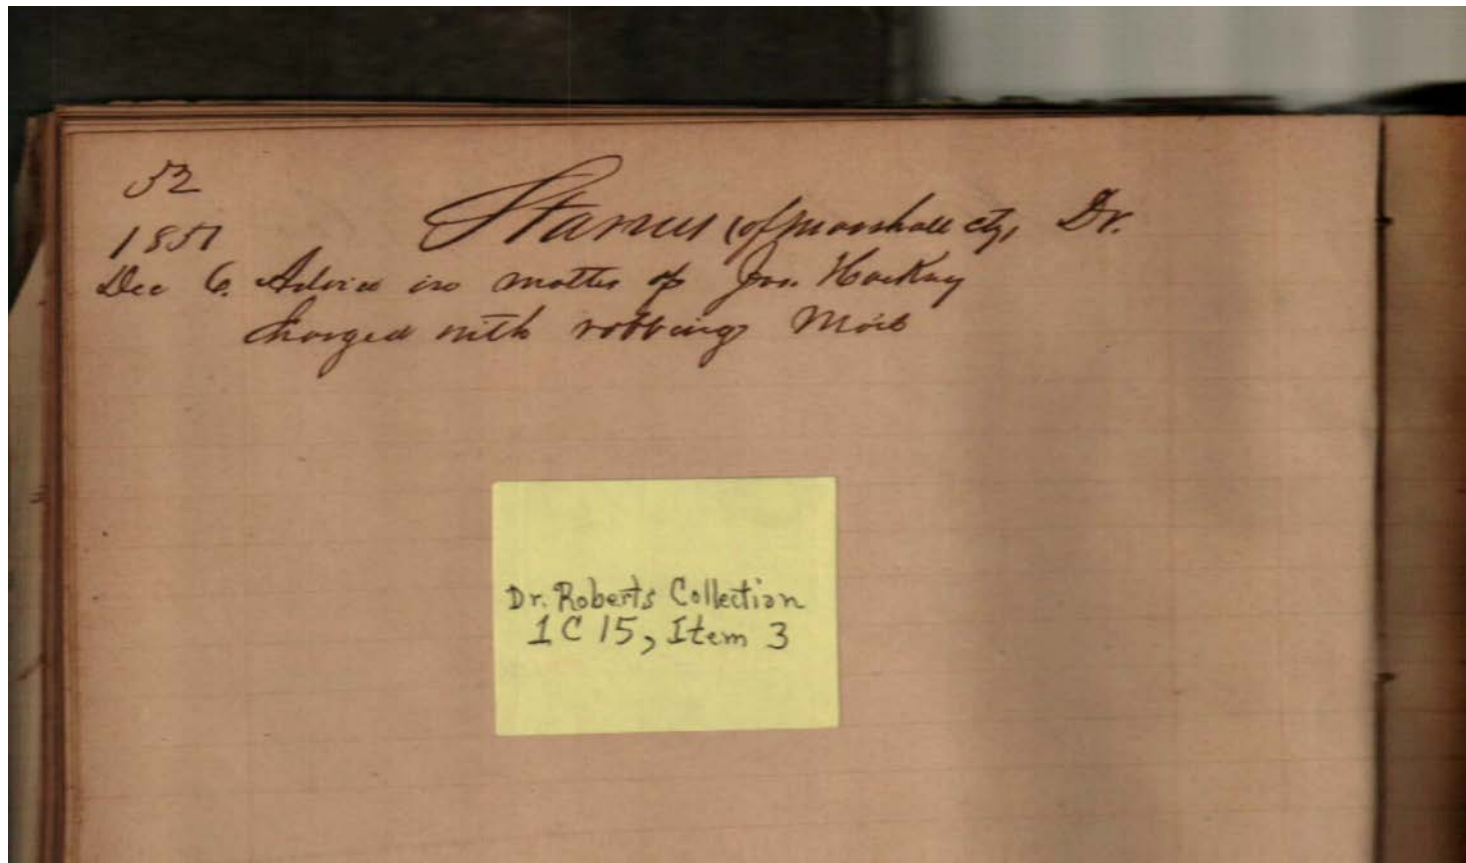 52
1857 Starnes (of Marshall cty, Dr.
Dec 6. Advice in matter of Jas. Hackney
charged with robbing Mail
Dr. Roberts Collection
1 C 15, Item 3